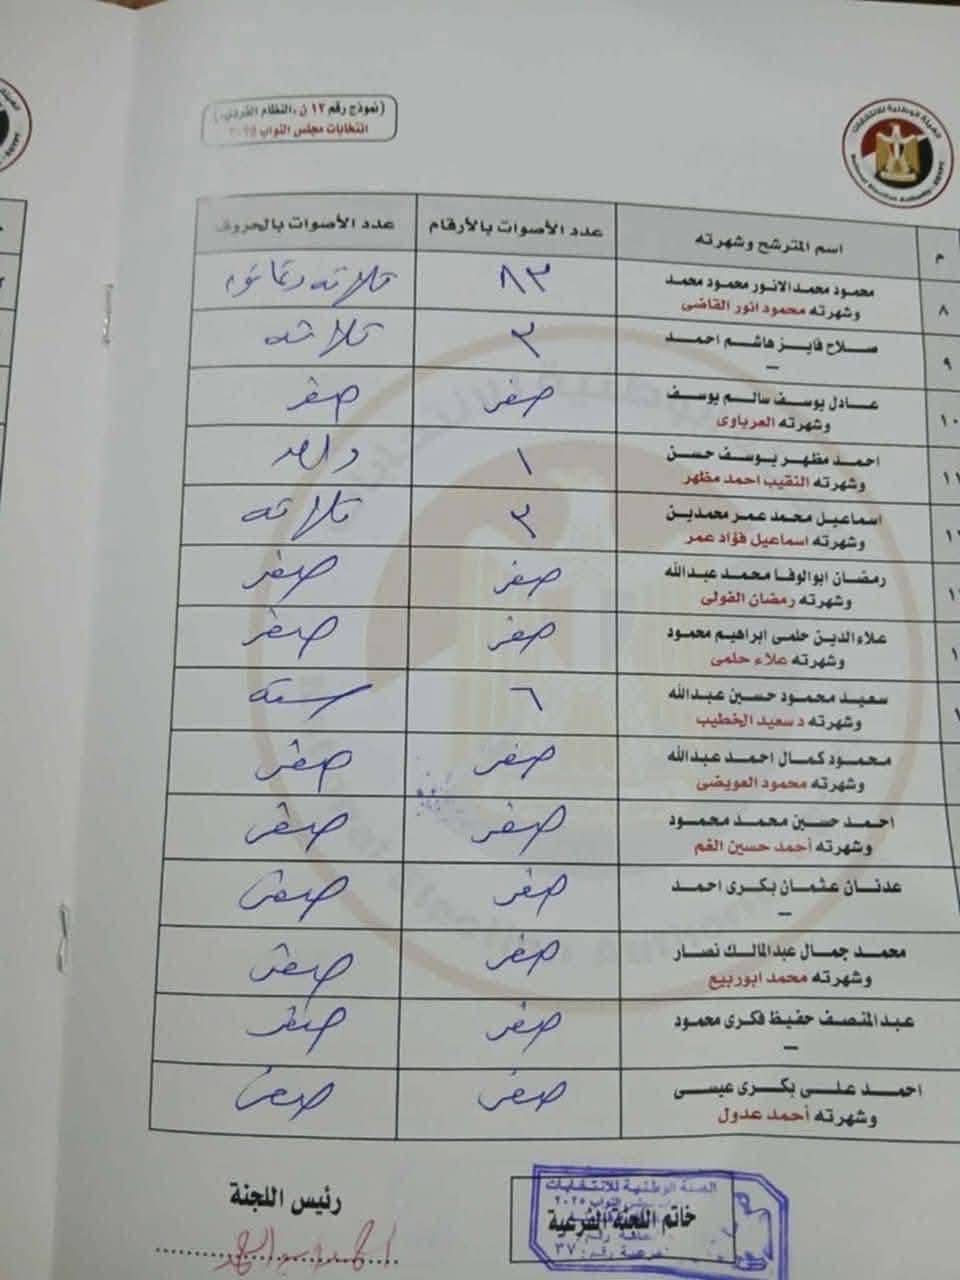 (نموذج رقم ١٢ ن.النظام الفردي.)
انتخابات مجلس النواب ٢٠٢٥
الهيئة الوطنية للانتخابات
م
اسم المترشح وشهرته
عدد الأصوات بالأرقام
عدد الأصوات بالحروف
٨
محمود محمد الانور محمود محمد
وشهرته محمود انور القاضى
٨٣
ثلاثه وثمانون
٩
صلاح فايز هاشم احمد
–
٣
ثلاثه
١٠
عادل يوسف سالم يوسف
وشهرته العرباوى
صفر
صفر
احمد مظهر يوسف حسن
وشهرته النقيب احمد مظهر
١
واحد
اسماعيل محمد عمر محمدين
وشهرته اسماعيل فؤاد عمر
٣
ثلاثه
رمضان ابوالوفا محمد عبدالله
وشهرته رمضان الفولى
صفر
صفر
علاءالدين حلمى ابراهيم محمود
وشهرته علاء حلمى
صفر
صفر
سعيد محمود حسين عبدالله
وشهرته د سعيد الخطيب
٦
سته
محمود كمال احمد عبدالله
وشهرته محمود العويضى
صفر
صفر
احمد حسين محمد محمود
وشهرته أحمد حسين الغم
صفر
صفر
عدنان عثمان بكرى احمد
–
صفر
صفر
محمد جمال عبدالمالك نصار
وشهرته محمد ابوربيع
صفر
صفر
عبدالمنصف حفيظ فكرى محمود
–
صفر
صفر
احمد على بكرى عيسى
وشهرته أحمد عدول
صفر
صفر
رئيس اللجنة
خاتم اللجنة الفرعية
الوطنية للانتخابات
النواب ٢٠٢٥
رقم: ٣٧